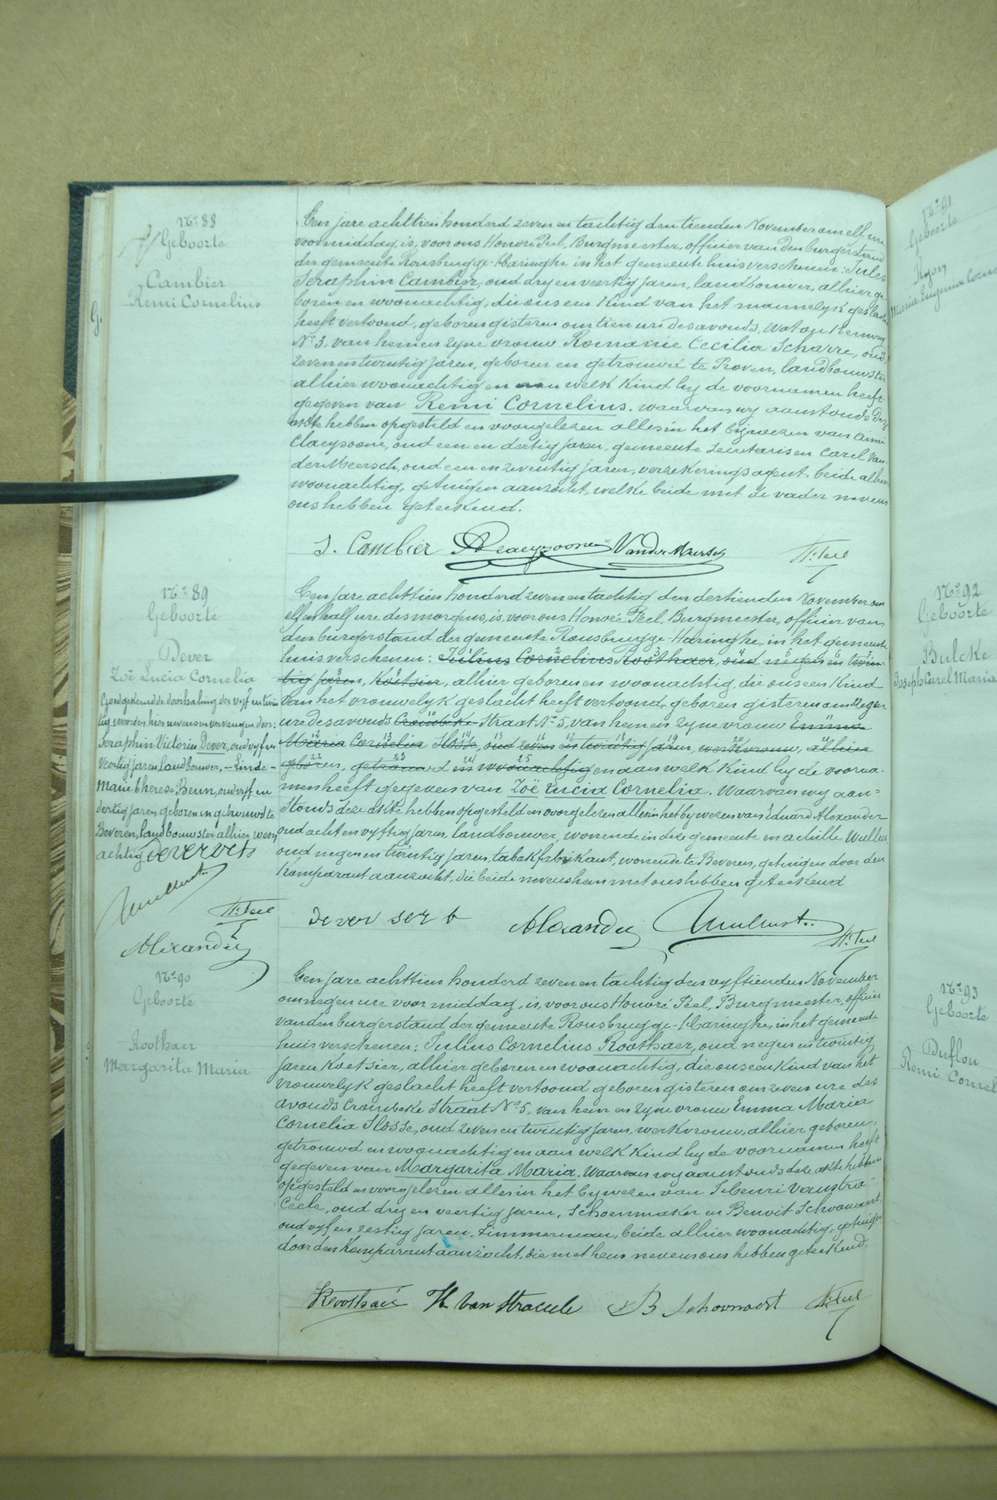 N° 88
Geboorte
Cambier
Remi Cornelius
Een jare achttien honderd zeven en tachtig den tienden November om elf ure
voormiddag, is, voor ons Honoré Peel, Burgmeester, officier van den burgerstand
der gemeente Rousbrugge-Haringhe in het gemeente huis verschenen: Jules
Seraphin Cambier, oud dry en veertig jaren, landbouwer, alhier ge-
boren en woonachtig, die ons een Kind van het mannelyk geslacht
heeft vertoond, geboren gisteren om tien ure des avonds,
N° 3, van hem en zyne vrouw Romanie Cecilia Scharre, oud
zeven en twintig jaren, geboren en getrouwd te Proven, landbouwster
alhier woonachtig en aan welk Kind hy de voornamen heeft
gegeven van Remi Cornelius. waarvan wy aanstonds dez
akte hebben opgesteld en voorgelezen alles in het bywezen van
Claeysoone, oud een en dertig jaren, gemeente Secretaris en Carel Van
der Meersch, oud een en zventig jaren, verzekerings agent, beide alhier
woonachtig, getuigen aanzocht, welke beide met de vader nevens
ons hebben geteekend.
J. Cambier Claeysoone Vander Meersch H. Peel
N° 89
Geboorte
Dever
Zoë Lucia Cornelia
Goedgekeurd de doorhaling der vyf en twin
tig woorden, hier nevens en vervangen door:
Seraphin Victorin Dever, oud vyf en
veertig jaren, landbouwer, - Linde -
Marie Therese Beun, oud elf en
dertig jaren geboren en gehuwd te
Beveren, landbouwster alhier woon
achtig
H. Peel
Alexander
Een jare achttien honderd zeven en tachtig den dertienden November om
elf en half ure des morgens, is, voor ons Honoré Peel, Burgmeester, officier van
den burgerstand der gemeente Rousbrugge-Haringhe, in het gemeente
huis verschenen: Julius Cornelius Roothaer, oud negen en twin-
tig jaren, Koetsier, alhier geboren en woonachtig, die ons een Kind
van het vrouwelyk geslacht heeft vertoond, geboren gisteren om negen
ure des avonds Crombeke Straat N° 5, van hem en zyne vrouw Emma
Maria Cornelia Slosse, oud zeven en twintig jaren, werkvrouw, alhier
geboren, getrouwd en woonachtig en aan welk Kind hy de voorna-
men heeft gegeven van Zoë Lucia Cornelia. Waarvan wy aan-
stonds deze akte hebben opgesteld en voorgelezen alles in het bywezen van Eduard Alexander
oud acht en vyftig jaren, landbouwer, wonende in die gemeent en achille
oud negen en twintig jaren, tabakfabrikant, wonende te Beveren, getuigen door den
Komparant aanzocht, die beide nevens hem met ons hebben geteekend
Alexander H. Peel
N° 90
Geboorte
Roothaer
Margarita Maria
Een jare achttien honderd zeven en tachtig den vyftienden November
om negen ure voor middag, is, voor ons Honoré Peel, Burgmeester, officier
van den burgerstand der gemeente Rousbrugge-Haringhe, in het gemeente
huis verschenen: Julius Cornelius Roothaer, oud negen en twintig
jaren Koetsier, alhier geboren en woonachtig, die ons een Kind van het
vrouwelyk geslacht heeft vertoond geboren gisteren om zeven ure des
avonds Crombeke Straat N° 5, van hem en zyne vrouw Emma Maria
Cornelia Slosse, oud zeven en twintig jaren, werkvrouw, alhier geboren,
getrouwd en woonachtig en aan welk Kind hy de voornamen heeft
gegeven van Margarita Maria. Waarvan wy aanstonds deze akte hebben
opgesteld en voorgelezen alles in het bywezen van Henri Vanstra-
ceele, oud dry en veertig jaren, Schoenmaker en Benoit Schovaert
oud vyf en zestig jaren, timmerman, beide alhier woonachtig, getuigen
door den Komparant aanzocht, die met hem nevens ons hebben geteekend.
Roothaer H. Van Straceele B. Schovaert H. Peel
N° 91
Geboorte
Maria Eugenia
N° 92
Geboorte
Bulcke
Joseph Carel Maria
N° 93
Geboorte
Duflou
Remi Cornel